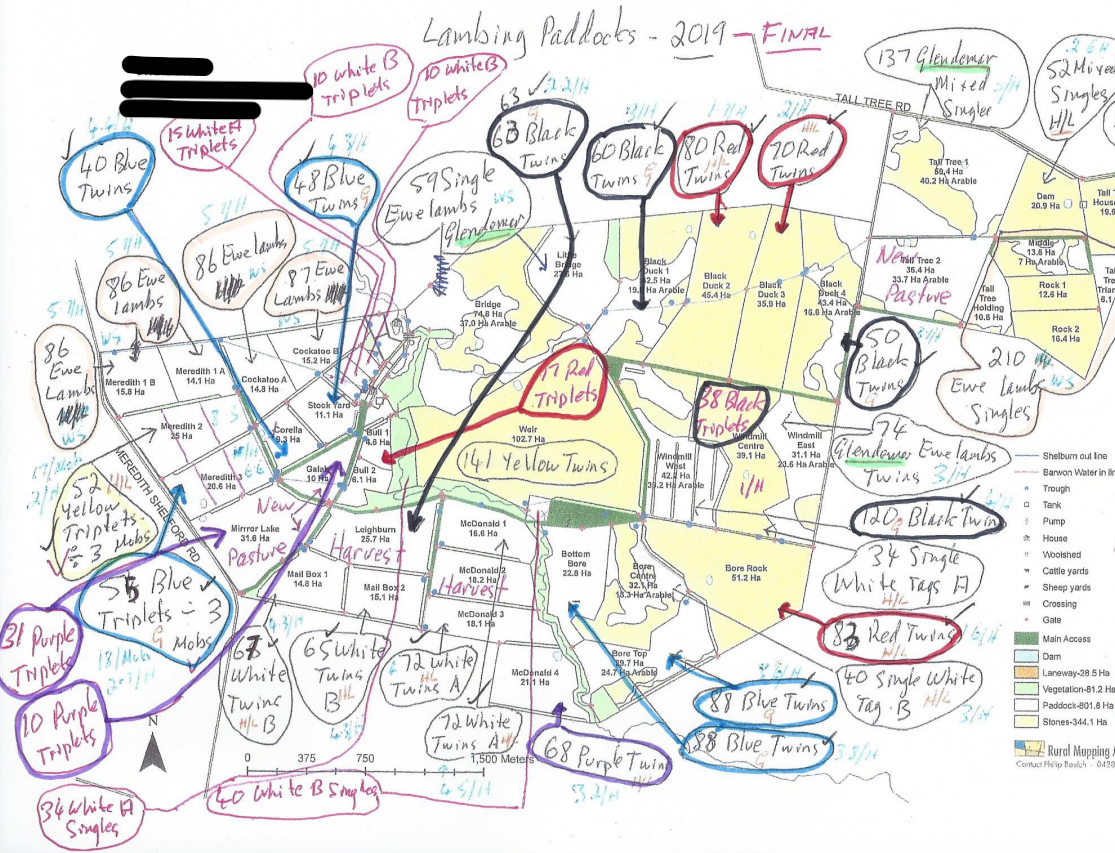 Lambing Paddocks - 2019 - FINAL
10 White B
Triplets
10 White B
Triplets
15 White A
Triplets
40 Blue
Twins
48 Blue
Twins
59 Single
Ewe lambs
Glendemar
WS
63
63 Black
Twins
2.2/H
60 Black
Twins
80 Red
Twins
H/L
70 Red
Twins
H/L
2/H
137 Glendemar
Mixed
Singles
52 Mixed
Singles
H/L
TALL TREE RD
86 Ewe lambs
WS
86 Ewe
Lambs
87 Ewe
Lambs
WS
86
Ewe
Lambs
WS
Tall Tree 1
59.4 Ha
40.2 Ha Arable
Dam
20.9 Ha
Middle
13.6 Ha
7 Ha Arable
Rock 1
12.6 Ha
Rock 2
16.4 Ha
Tall
Tree
Holding
10.8 Ha
Tall Tree 2
36.4 Ha
33.7 Ha Arable
New
Pasture
Bridge
74.8 Ha
37.0 Ha Arable
Little
Bridge
Black
Duck 1
Black
Duck 2
45.4 Ha
Black
Duck 3
35.9 Ha
Black
Duck 4
43.4 Ha
16.6 Ha Arable
Cockatoo B
15.2 Ha
Meredith 1 B
15.8 Ha
Meredith 1 A
14.1 Ha
Cockatoo A
14.8 Ha
Stock Yard
11.1 Ha
Meredith 2
25 Ha
Corella
9.3 Ha
Bull 1
4.6 Ha
Galah
10 Ha
Bull 2
6.1 Ha
Meredith 3
20.6 Ha
MEREDITH SHELFORD RD
Weir
102.7 Ha
141 Yellow Twins
17 Red
Triplets
38 Black
Triplets
50
Black
Twins
210
Ewe Lambs
Singles
WS
Windmill
West
42.2 Ha
Windmill
Centre
39.1 Ha
1/H
Windmill
East
31.1 Ha
74
Glendemar Ewe lambs
Twins 3/H
120 Black Twin
34 Single
White Tags A
H/L
83 Red Twins
H/L
40 Single White
Tag B
H/L
3/H
52 H/L
Yellow
Triplets
3 Mobs
New
Pasture
Mirrror Lake
31.6 Ha
Leighburn
25.7 Ha
Harvest
Mail Box 1
14.8 Ha
Mail Box 2
15.1 Ha
McDonald 1
16.6 Ha
McDonald 2
18.2 Ha
Harvest
McDonald 3
18.1 Ha
McDonald 4
21.1 Ha
Bottom
Bore
22.8 Ha
Bore
Centre
Bore Rock
51.2 Ha
Bore Top
24.7 Ha Arable
55 Blue
Triplets - 3
Mobs
31 Purple
Triplets
10 Purple
Triplets
67
White
Twins
H/L B
65 White
Twins
B
H/L
72 White
Twins A
H/L
72 White
Twins A
H/L
68 Purple Twin
H/L
3.2/H
88 Blue Twins
G
88 Blue Twins
G
3.8/H
4.5/H
N
0 375 750 1,500 Meters
40 White B Singles
34 White A
Singles
Shelburn out line
Barwon Water in
Trough
Tank
Pump
House
Woolshed
Cattle yards
Sheep yards
Crossing
Gate
Main Access
Dam
Laneway-28.5 Ha
Vegetation-81.2 Ha
Paddock-801.6 Ha
Stones-344.1 Ha
Rural Mapping